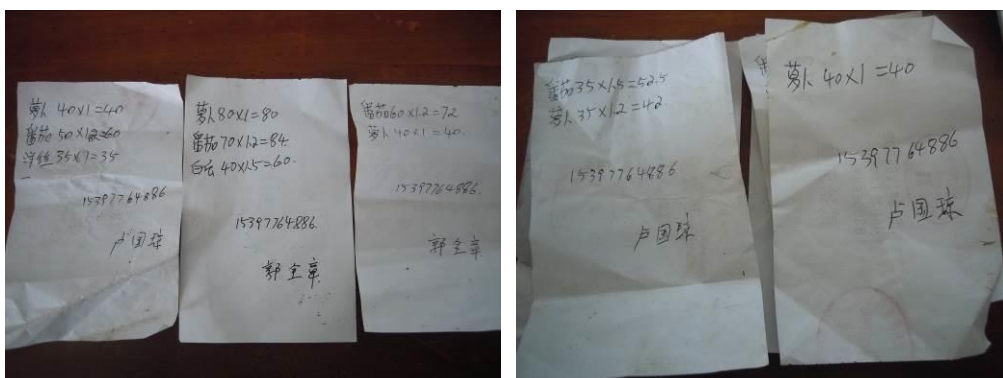 萝卜 40×1=40
番茄 50×1.2=60
35×1=35
15397764886
卢国琼
萝卜 80×1=80
番茄 70×1.2=84
白云 40×1.5=60.
15397764886.
郭全章
番茄 60×1.2=72
萝卜 40×1=40.
15397764886.
郭全章
番茄 35×1.5=52.5
萝卜 35×1.2=42
15397764886
卢国琼
番
萝卜 40×1=40
15397764886
卢国琼